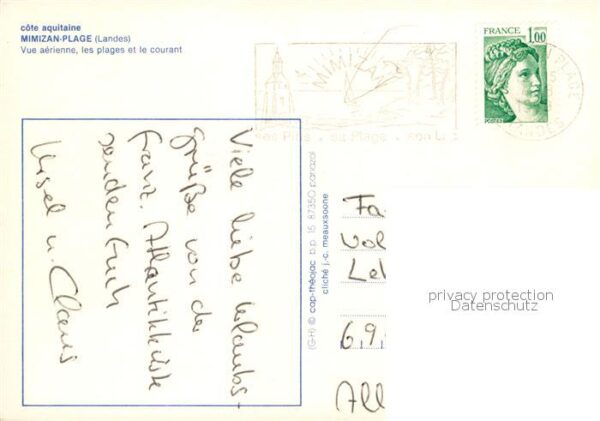 côte aquitaine
MIMIZAN-PLAGE (Landes)
Vue aérienne, les plages et le courant
MIMIZAN
ses Pins . sa Plage . son L
FRANCE
1,00
PLAGE
LANDES
Viele liebe Urlaubs-
grüße von der
franz. Atlantikküste
senden Euch
Ursel u. Claus
(G-H) © cap-théojac b.p. 15 87350 panazol
cliché j.-c. meauxsoone
Fa
Vol
Le
6,9,
All
privacy protection
Datenschutz